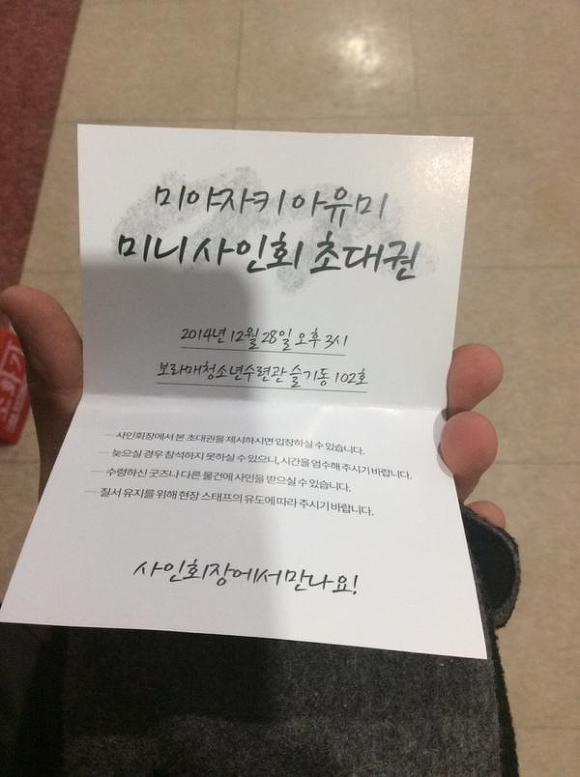 미야자키 아유미
미니 사인회 초대권
2014년 12월 28일 오후 3시
보라매청소년수련관 슬기동 102호
— 사인회장에서 본 초대권을 제시하시면 입장하실 수 있습니다.
— 늦으실 경우 참석하지 못하실 수 있으니, 시간을 엄수해 주시기 바랍니다.
— 수령하신 굿즈나 다른 물건에 사인을 받으실 수 있습니다.
— 질서 유지를 위해 현장 스태프의 유도에 따라 주시기 바랍니다.
사인회장에서 만나요!